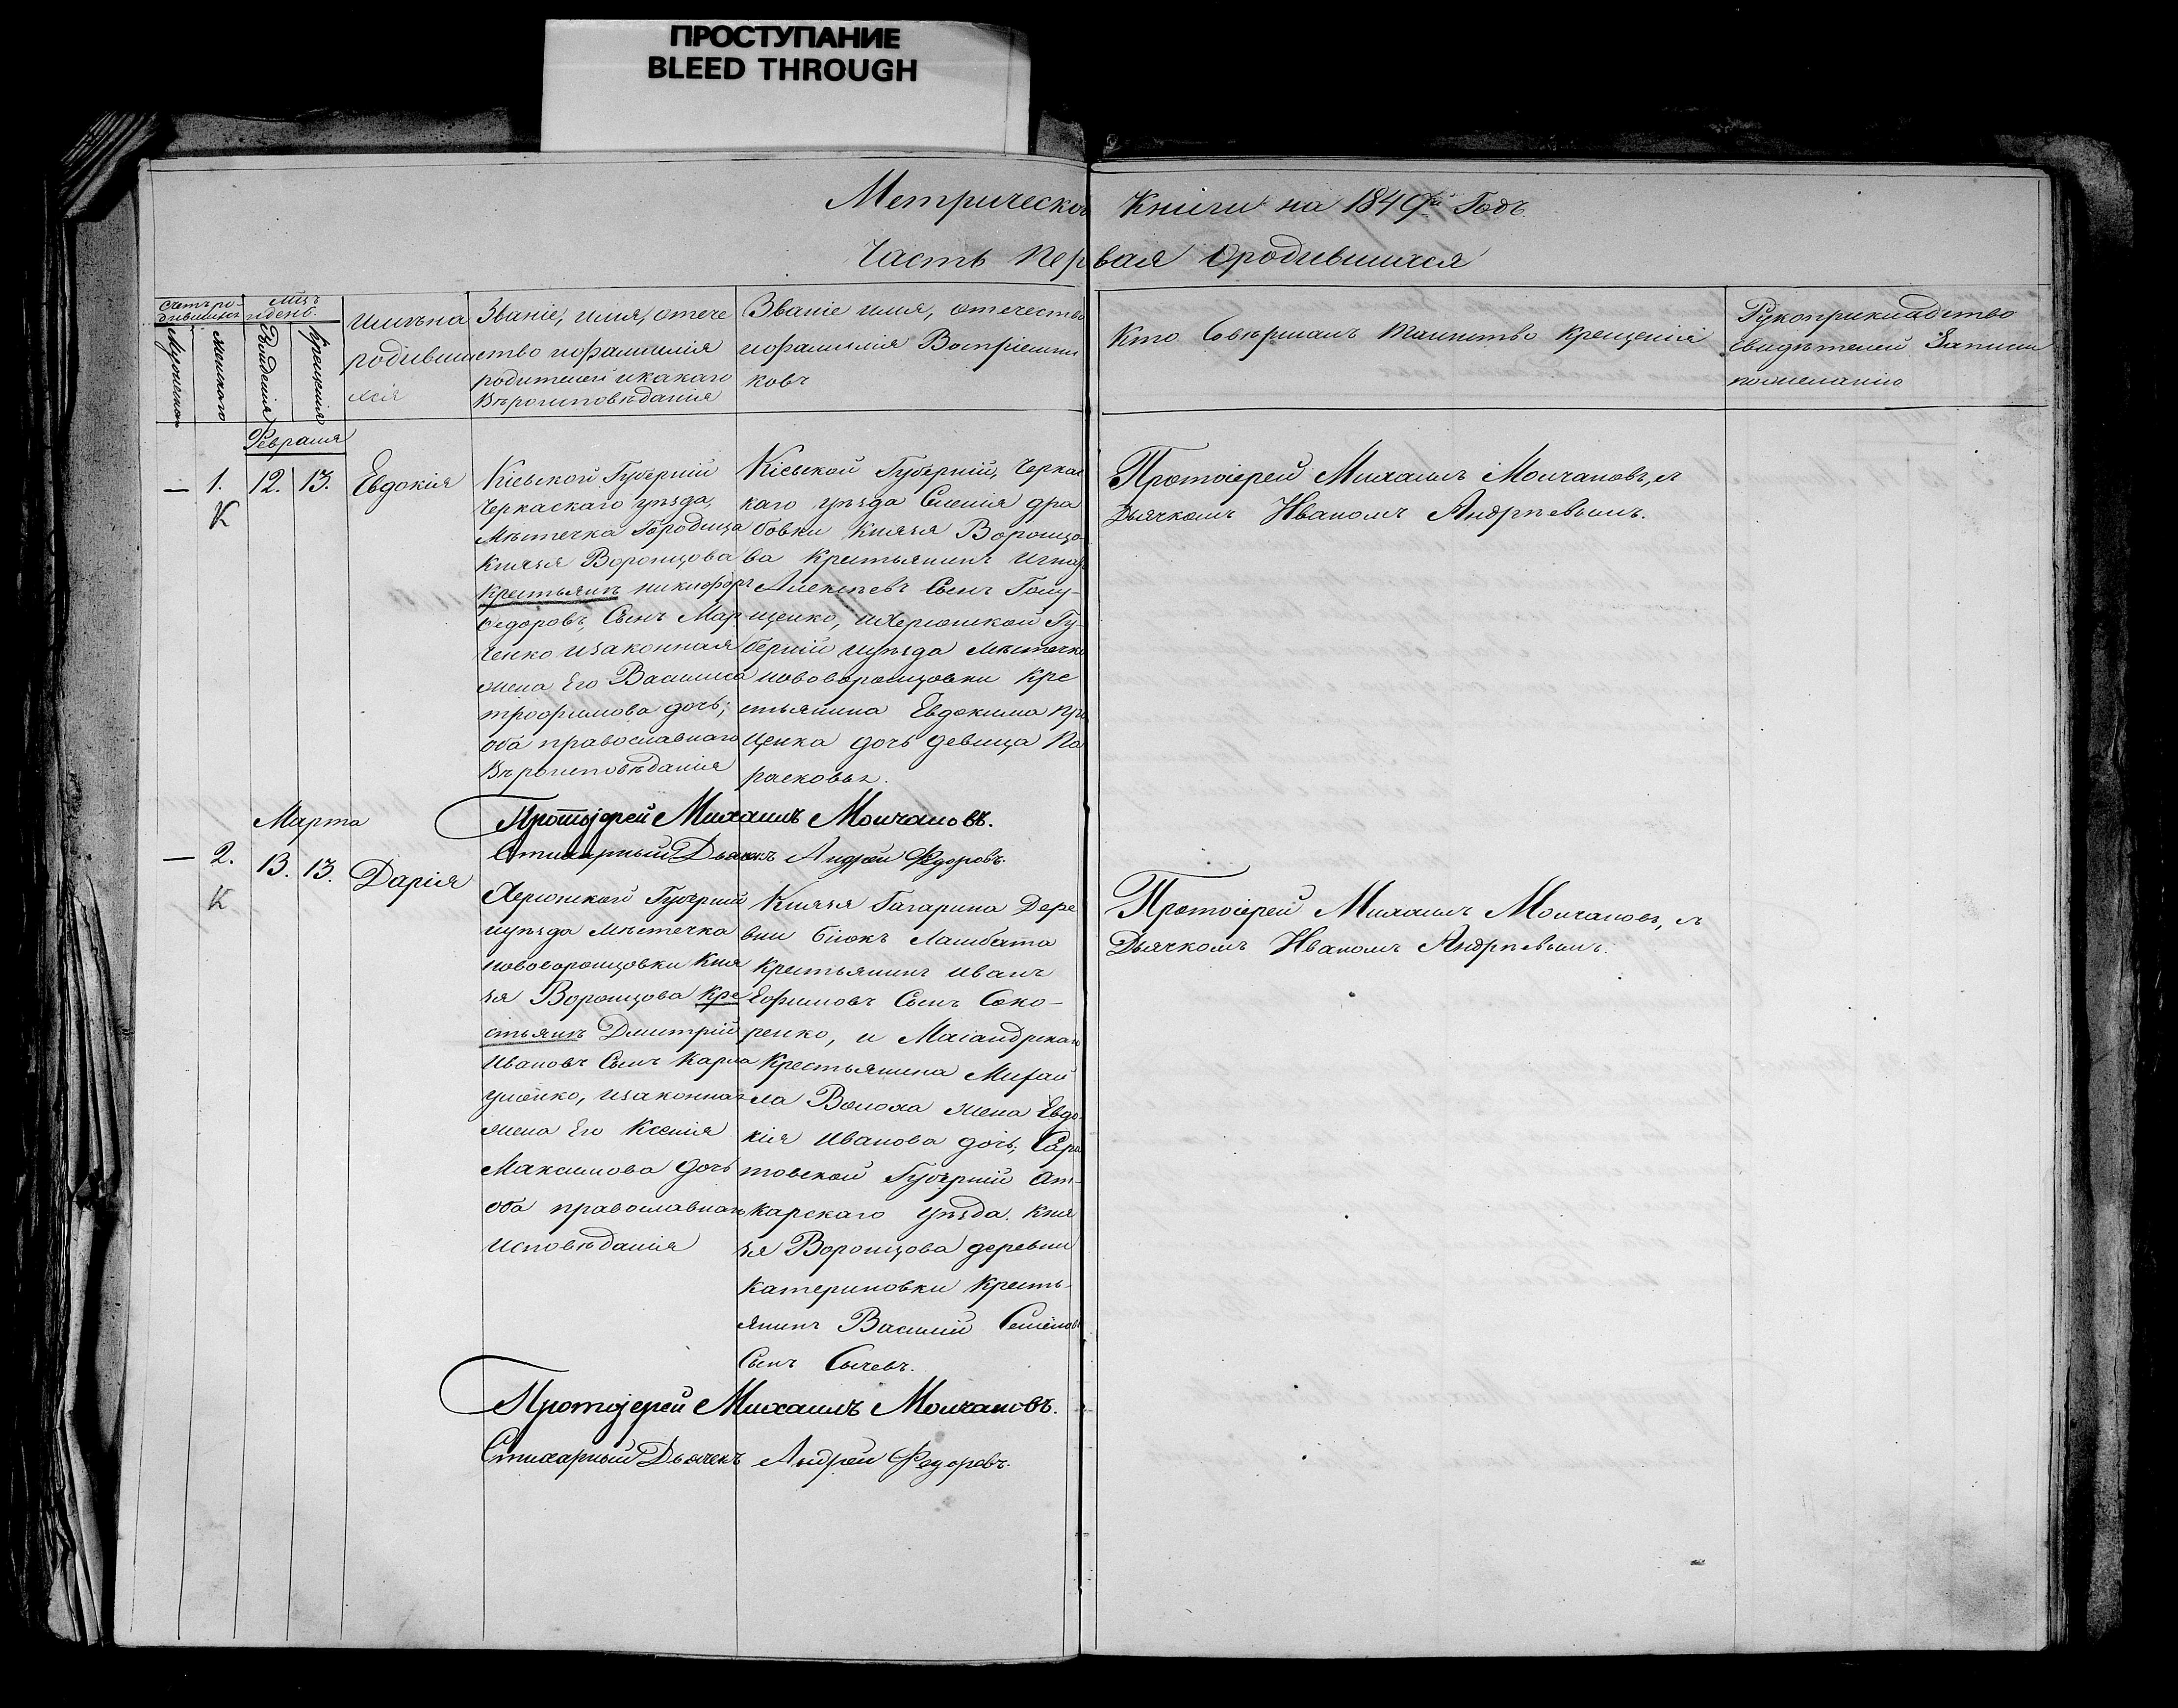 ПРОСТУПАНИЕ
BLEED THROUGH
Метрической Книги на 1849й Годъ
Часть Первая Ородившихся
Счетъ ро-
дившихся
Мужескаго
женскаго
Мцъ
идень.
Рожденія
Крещенія
Имяна
родивши
хся
Званіе, имя, отече
ство ифамилія
родителей икакаго
Вѣроисповѣданія
Званіе имя, отечество
ифамилія Воспріемни
ковъ
Кто Совѣршалъ таинство Крещенія
Рукоприкладство
Свидѣтелей Записи
пожеланію
Февраля
— 1. 12. 13. Евдокія
К
Кіевской Губерніи
Черкаскаго уѣзда,
Мѣстечка Городища
Князя Воронцова
Крестьянъ никифоръ
Федоровъ, Сынъ Мар
ченко изаконная
жена Его Васииса
трофимова дочь;
оба православнаго
Вѣроисповѣданія
Кіевской Губерніи, Черкас
каго уѣзда Селенія дра
бовки Князя Воронцо
ва Крестьянинъ Игнатъ
Алексѣевъ Сынъ Голу-
щенко, иХерсонской Гу
берніи иуѣзда мѣстечка
нововоронцовки Кре
стьянина Евдокима
щенка дочь девица Па
расковья.
Протоіерей Михаилъ Молчановъ, съ
Дьячкомъ Иваномъ Андрѣевымъ.
Протоjерей Михаилъ Молчановъ.
Стихарный Дьячекъ Андрей Федоровъ.
Марта
— 2. 13. 13. Дарія
К
Херсонской Губерніи
иуѣзда мѣстечка
нововоронцовки Кня
зя Воронцова Кре
стьянъ Дмитрій
Ивановъ Сынъ Карна
ушенко, изаконная
жена Его Ксенія
Максимова дочь
оба православнаго
Исповѣданія
Князя Гагарина Дере
вни біюкъ Ламбата
Крестьянинъ Иванъ
Ефимовъ Сынъ Соко-
ренко, и Масандрскаго
Крестьянина Михай
ла Волоха жена Евдо
кія Иванова дочь; Сара
товской Губерніи Ат-
карскаго уѣзда. Кня
зя Воронцова деревни
Катериновки Кресть-
янинъ Василій Семёновъ
Сынъ Сычевъ.
Протоіерей Михаилъ Молчановъ, съ
Дьячкомъ Иваномъ Андрѣевымъ.
Протоjерей Михаилъ Молчановъ.
Стихарный Дьячекъ Андрей Федоровъ.